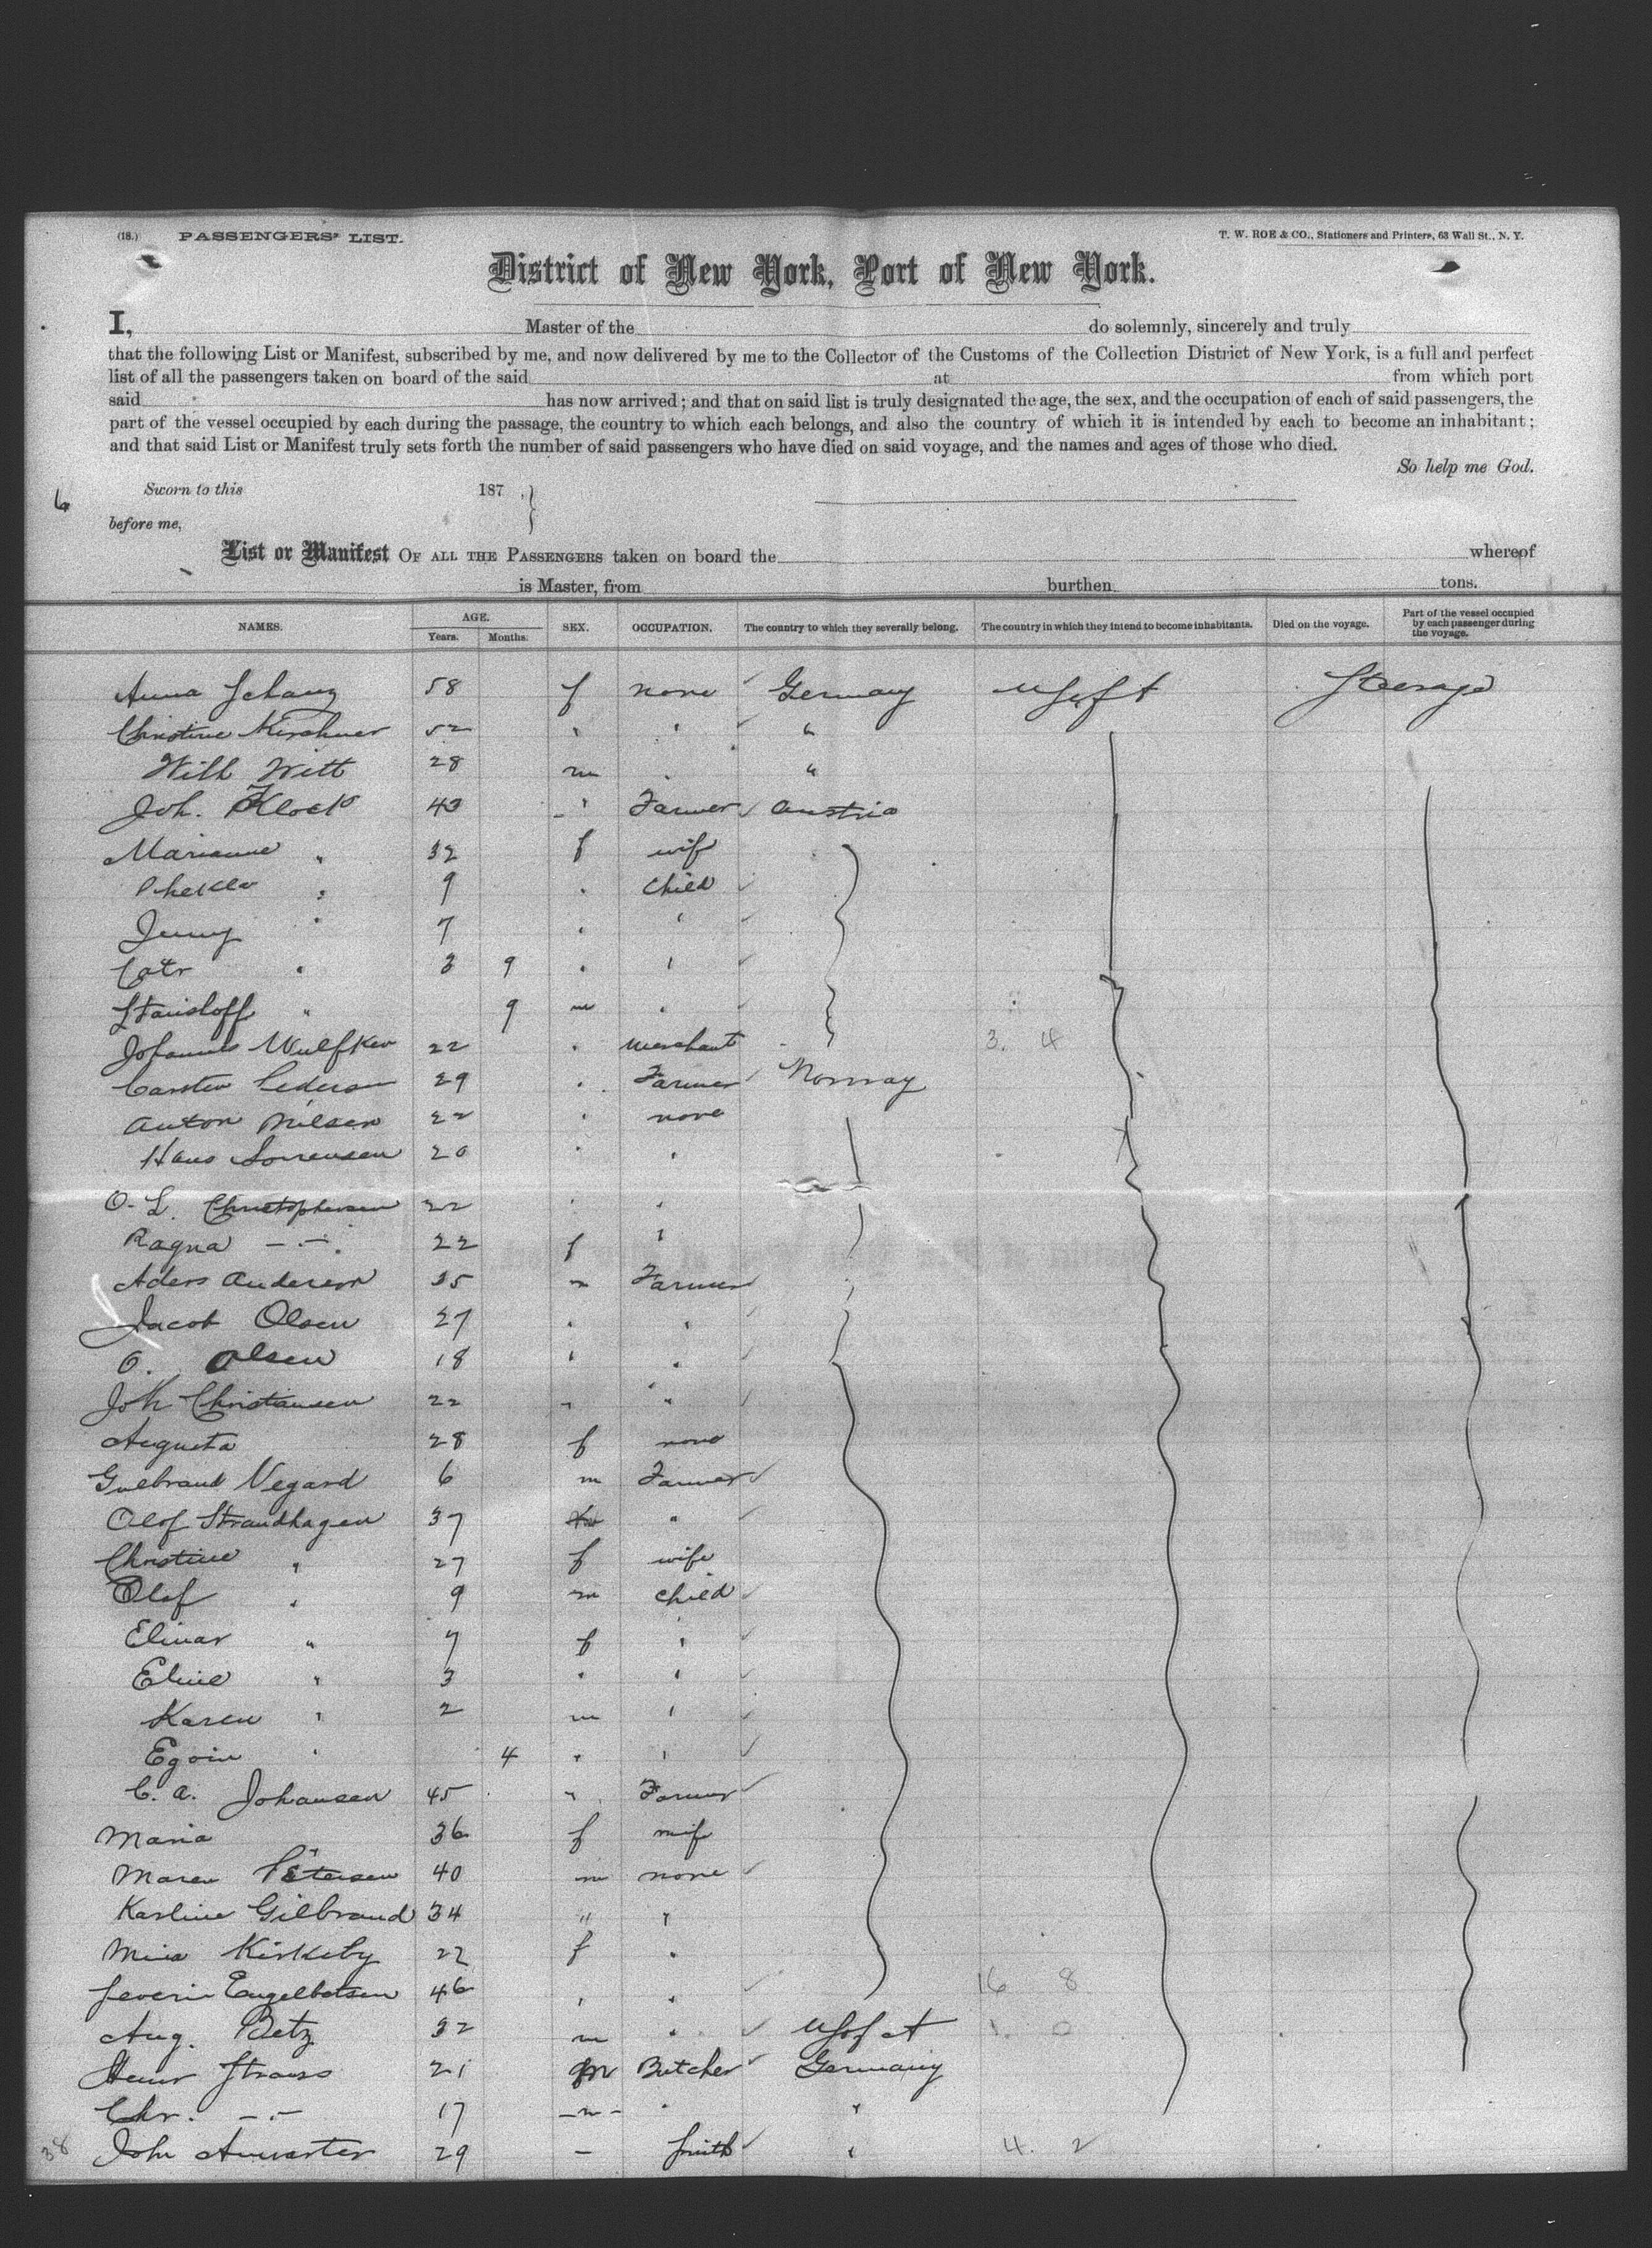 (18.) PASSENGERS' LIST. T. W. ROE & CO., Stationers and Printers, 63 Wall St., N. Y.
District of New York, Port of New York.
I, Master of the do solemnly, sincerely and truly
that the following List or Manifest, subscribed by me, and now delivered by me to the Collector of the Customs of the Collection District of New York, is a full and perfect
list of all the passengers taken on board of the said at from which port
said has now arrived; and that on said list is truly designated the age, the sex, and the occupation of each of said passengers, the
part of the vessel occupied by each during the passage, the country to which each belongs, and also the country of which it is intended by each to become an inhabitant;
and that said List or Manifest truly sets forth the number of said passengers who have died on said voyage, and the names and ages of those who died.
So help me God.
6 Sworn to this 187
before me,
List or Manifest OF ALL THE PASSENGERS taken on board the whereof
is Master, from burthen tons.
NAMES. AGE. Years. Months. SEX. OCCUPATION. The country to which they severally belong. The country in which they intend to become inhabitants. Died on the voyage. Part of the vessel occupied by each passenger during the voyage.
Anna Schanz 58 f none Germany U S of A Steerage
Christine Kirchner 52 " " "
Will Witt 28 m " "
Joh. Klock 43 " Farmer Austria
Marianne " 32 f wife
" 9 " child
Jenny " 7 " "
Catr " 3 9 " "
Stanisloff " 9 m "
Johannes Wulfken 22 " merchant 3. 4
Carsten Pedersen 29 " Farmer Norway
Anton Nilsen 22 " none
Hans Sorrensen 20 " "
O. L. Christophersen 22 " "
Ragna -"- 22 f "
Aders Anderson 35 m Farmer
Jacob Olsen 27 " "
O. Olsen 18 " "
Joh Christiansen 22 " "
Augusta 28 f none
Gulbrand Vegard 6 m Farmer
Olof Strandhagen 37 "
Christine " 27 f wife
Olof " 9 m child
Elinar " 7 f "
Eline " 3 " "
Karen " 2 m "
Egoin " 4 " "
C. A. Johansen 45 " Farmer
Maria 36 f wife
Maren Petersen 40 m none
Karline Gilbrand 34 " "
Mina Kirkeby 22 f "
Severin Engelbetsen 46 " " 16 8
Aug. Betz 32 m " U S of A 1. 0
Henr Strauss 21 m Butcher Germany
Chr. -"- 17 -m- " "
38 John 29 - Smith " 4. 2